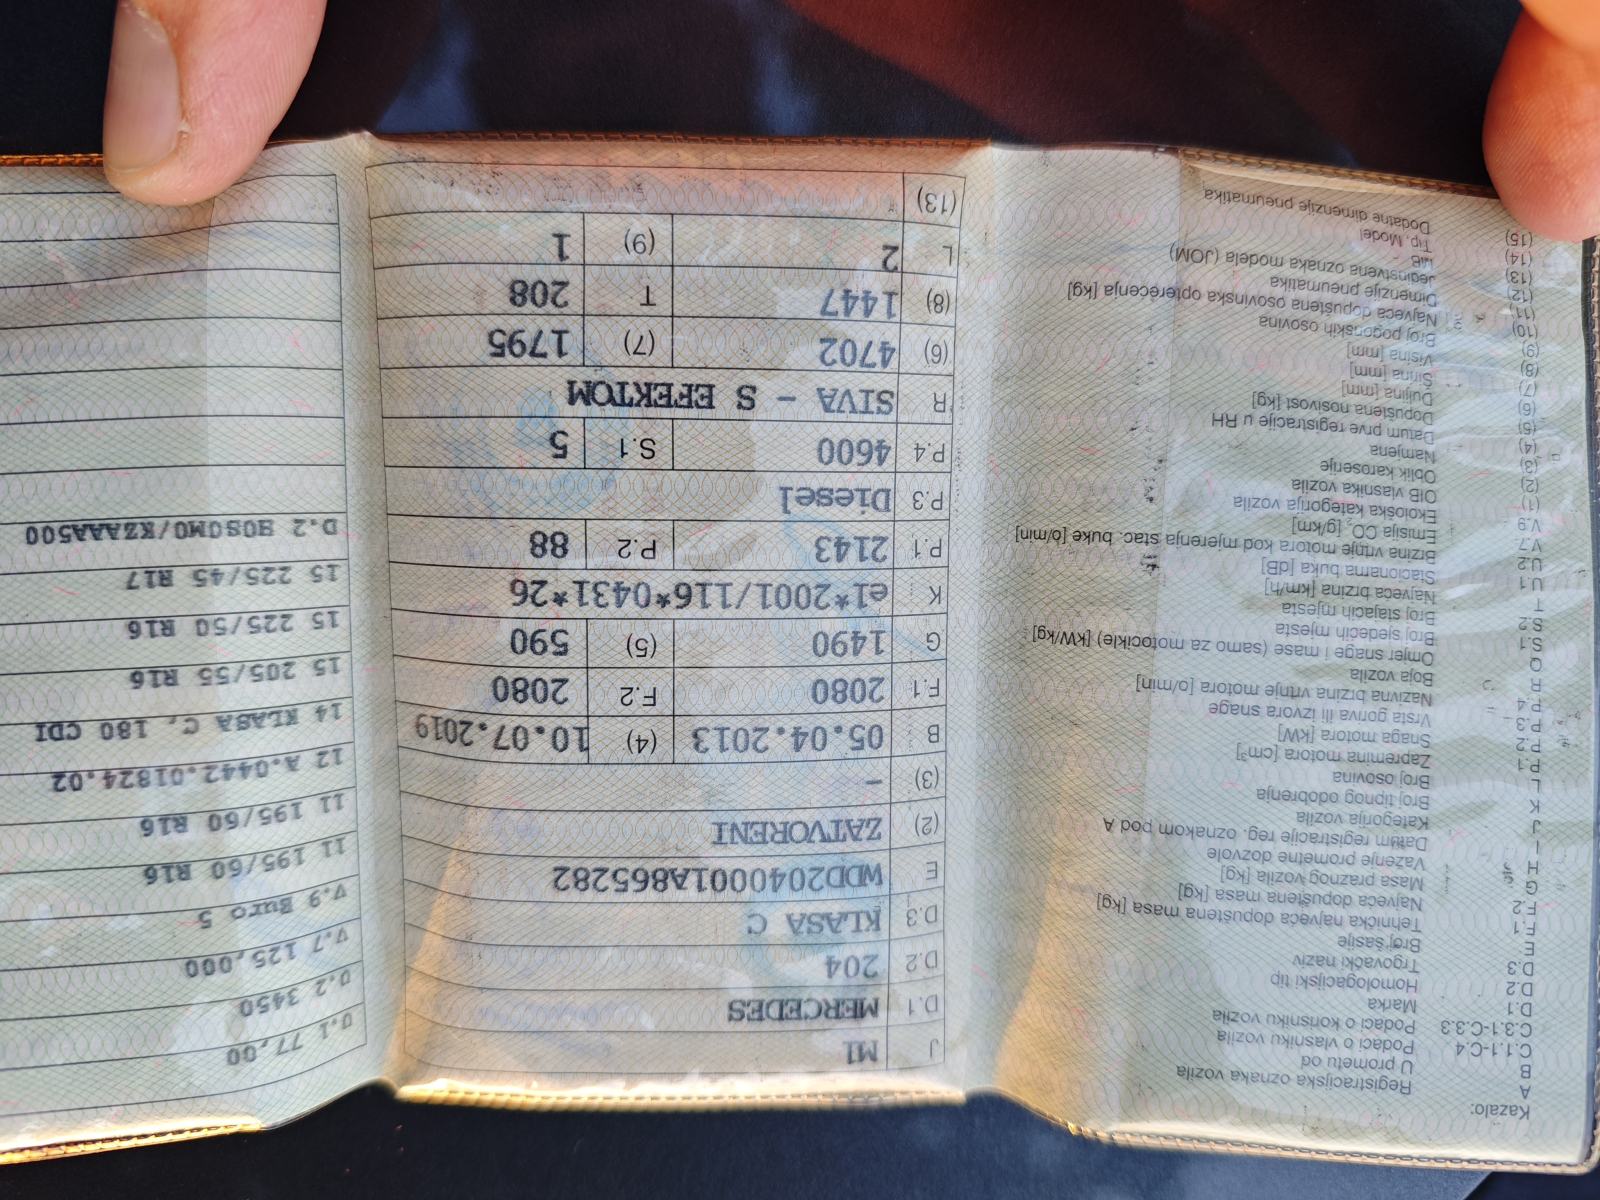 Kazalo:
A Registracijska oznaka vozila
B U prometu od
C.1.1-C.4 Podaci o vlasniku vozila
C.3.1-C.3.3 Podaci o korisniku vozila
D.1 Marka
D.2 Homologacijski tip
D.3 Trgovački naziv
E Broj šasije
F.1 Tehnička najveća dopuštena masa [kg]
F.2 Najveća dopuštena masa [kg]
G Masa praznog vozila [kg]
H Važenje prometne dozvole
I Datum registracije reg. oznakom pod A
J Kategorija vozila
K Broj tipnog odobrenja
L Broj osovina
P.1 Zapremina motora [cm³]
P.2 Snaga motora [kW]
P.3 Vrsta goriva ili izvora snage
P.4 Nazivna brzina vrtnje motora [o/min]
R Boja vozila
Q Omjer snage i mase (samo za motocikle) [kW/kg]
S.1 Broj sjedećih mjesta
S.2 Broj stajaćih mjesta
T Najveća brzina [km/h]
U.1 Stacionarna buka [dB]
U.2 Brzina vrtnje motora kod mjerenja stac. buke [o/min]
V.7 Emisija CO₂ [g/km]
V.9 Ekološka kategorija vozila
(1) OIB vlasnika vozila
(2) Oblik karoserije
(3) Namjena
(4) Datum prve registracije u RH
(5) Dopuštena nosivost [kg]
(6) Duljina [mm]
(7) Širina [mm]
(8) Visina [mm]
(9) Broj pogonskih osovina
(10) Najveća dopuštena osovinska opterećenja [kg]
(11) Dimenzije pneumatika
(12) Jedinstvena oznaka modela (JOM)
(13) MB
(14) Tip, Model
(15) Dodatne dimenzije pneumatika
J M1
D.1 MERCEDES
D.2 204
D.3 KLASA C
E WDD2040001A865282
(2) ZATVORENI
(3) -
B 05.04.2013 (4) 10.07.2019
F.1 2080 F.2 2080
G 1490 (5) 590
K e1*2001/116*0431*26
P.1 2143 P.2 88
P.3 Diesel
P.4 4600 S.1 5
R SIVA - S EFEKTOM
(6) 4702 (7) 1795
(8) 1447 T 208
L 2 (9) 1
(13)
U.1 77,00
U.2 3450
V.7 125,000
V.9 Euro 5
11 195/60 R16
11 195/60 R16
12 A.0442.01824.02
14 KLASA C, 180 CDI
15 205/55 R16
15 225/50 R16
15 225/45 R17
D.2 H0S0M0/KZAAA500